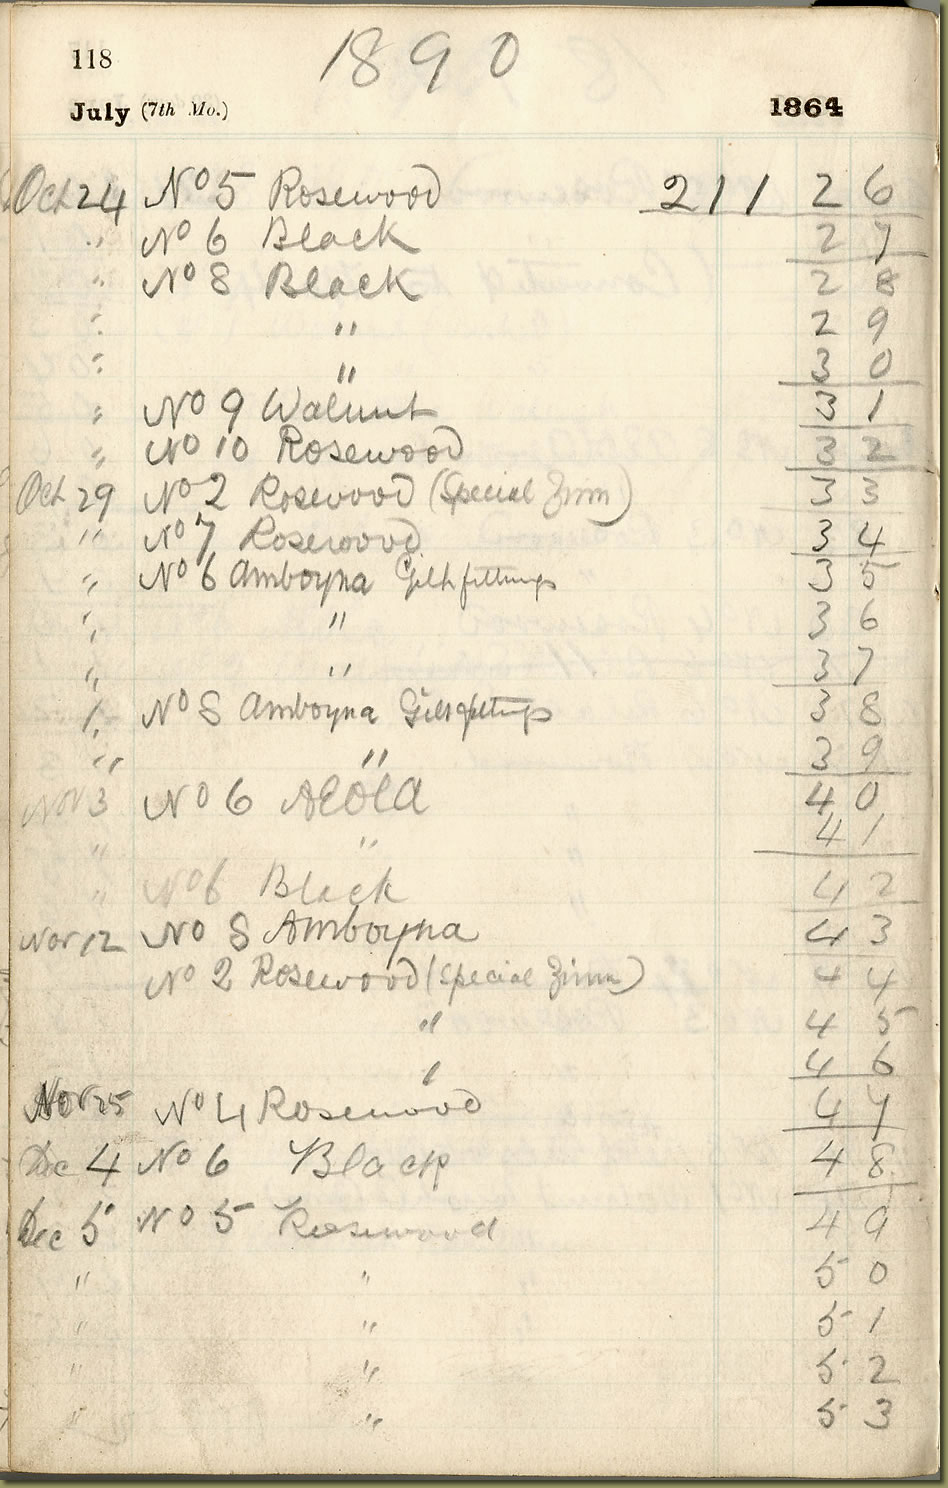 118
1890
July (7th Mo.) 1864
Oct 24 No 5 Rosewood 211 2 6
" No 6 Black 2 7
" No 8 Black 2 8
" " 2 9
" " 3 0
" No 9 Walnut 3 1
" No 10 Rosewood 3 2
Oct 29 No 2 Rosewood (Special Zimm) 3 3
" No 7 Rosewood 3 4
" No 6 Amboyna Gilt fittings 3 5
" " 3 6
" " 3 7
" No 8 Amboyna Gilt fittings 3 8
" " 3 9
Nov 3 No 6 4 0
" " 4 1
" No 6 Black 4 2
Nov 12 No 8 Amboyna 4 3
No 2 Rosewood (Special Zimm) 4 4
" 4 5
" 4 6
Nov 25 No 4 Rosewood 4 7
Dec 4 No 6 Black 4 8
Dec 5 No 5 Rosewood 4 9
" " 5 0
" " 5 1
" " 5 2
" " 5 3